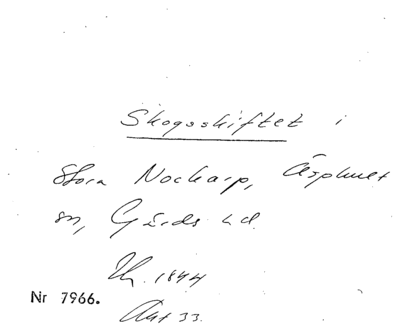 Skogsskiftet i
Stora Nockarp, Äsphult
sn, Gärds hd.
1844
Nr 7966.
Akt 33.